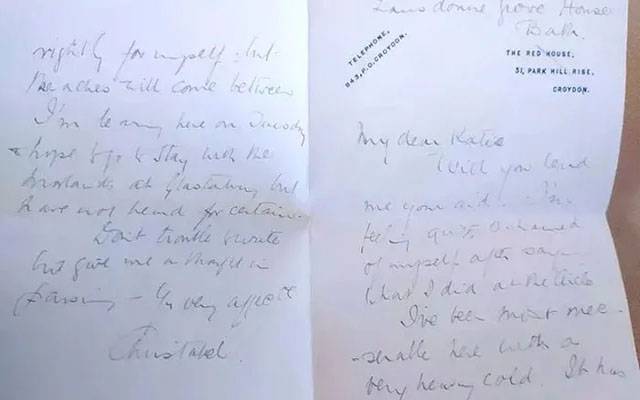 Lansdowne Grove House
Bath.
TELEPHONE,
843, P.O. CROYDON.
THE RED HOUSE,
51, PARK HILL RISE,
CROYDON.
My dear Katie
Will you lend
me your aid. I'm
feeling quite ashamed
of myself after
what I did at the
I've been most mis-
-erable here with a
very heavy cold. It has
rightly for myself: but
the aches will come between
I'm leaving here on Tuesday
& hope to go to stay with the
at Glastonbury but
have not heard for certain.
Don't trouble to write
but give me a thought in
passing - Yr very affecte
Christabel.